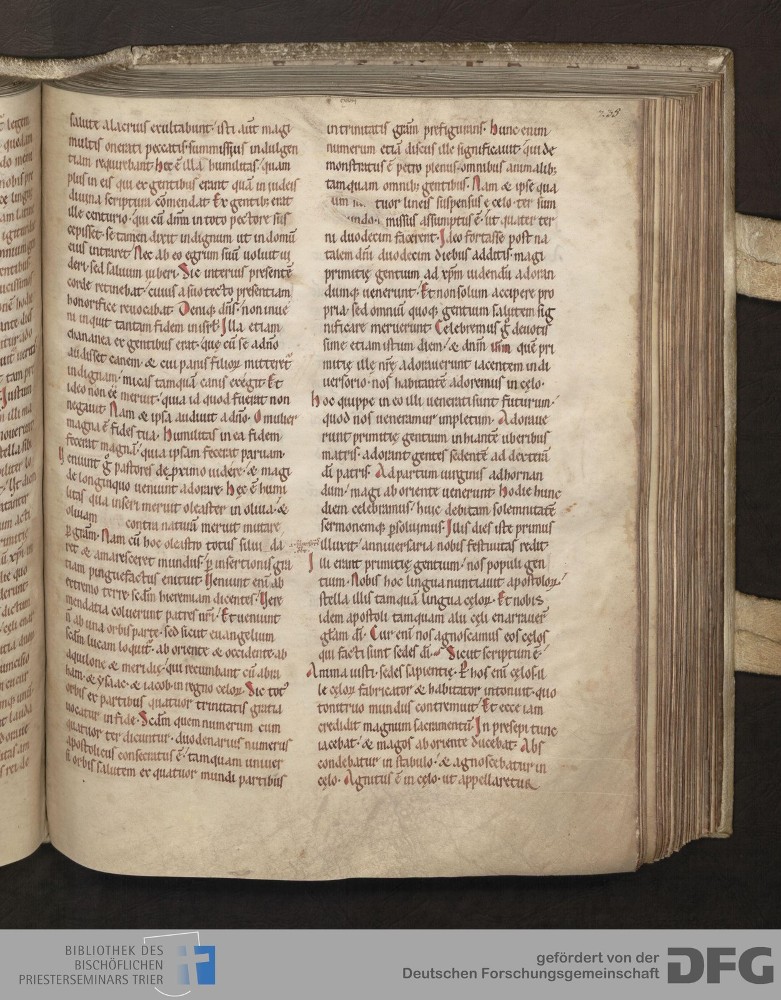 235
salute alacrius exultabunt· isti aut̄ magi
multis onerati peccatis summissius indulgen
tiam requirebant· Hęc ē illa humilitas· quam
plus in eis qui ex gentibus erant quā in iudeis
diuina scriptura cōmendat· Ex gentib; erat
ille centurio· qui cū dn̄m in toto pectore sus
cepisset· se tamen dixit indignum ut in domū
eius intraret· Nec ab eo egrum suū uoluit ui
deri· sed saluum iuberi· Sic interius presentē
corde retinebat· cuius a suo tecto presentiam
honorifice reuocabat· Deniq; dn̄s· non inue
ni inquit tantam fidem in isrł· Illa etiam
chananea ex gentibus erat· que cū se a dn̄o
audisset canem· & cui panis filioꝝ mitteret᷑
indignam· micas tamquā canis exegit· Et
ideo non eē meruit· quia id quod fuerat non
negauit· Nam & ipsa audiuit a dn̄o· O mulier
magna ē fides tua· Humilitas in ea fidem
fecerat magnā· quia ipsam fecerat paruam·
Ueniunt g̊ pastores de proximo uidere· & magi
de longinquo ueniunt adorare· Hęc ē humi
litas qua inseri meruit oleaster in oliua· &
oliuam contra naturā meruit mutare
p̱ gr̄am· Nam cū hoc oleastro totus silu da
ret & amaresceret mundus· p̱ insertionis gra
tiam pinguefactus enituit· Ueniunt eni᷒ ab
extremo terre· sc̄dm hieremiam dicentes· Uere
mendatia coluerunt patres nr̄i· Et ueniunt
n̄ ab una orbis parte· sed sicut euangelium
sc̄dm lucam loquit᷑· ab oriente & occidente· ab
aquilone & meridie· qui recumbant cū abra
ham· & ysaac· & iacob· in regno celoꝝ· Sic tot᷒
orbis ex partibus quatuor trinitatis gratia
uocatur in fide· Sc̄dam quem numerum cum
quatuor ter dicuntur· duodenarius numerus
apostolicus consecratus ē· tamquam uniuer
si orbis salutem ex quatuor mundi partibus
in trinitatis gr̄am prefigurans· Hunc enim
numerum etiā discus ille significauit· qui de
monstratus ē petro plenus· omnibus animalib;
tamquam omnib; gentibus· Nam & ipse qua
tuor lineis suspensus e celo· ter sum
missus assumptus ē· ut quater ter
ni duodecim facerent· Ideo fortasse post na
talem dn̄i duodecim diebus additis· magi
primitię gentium ad xp̄m uidendū adoran
dumq; uenerunt· Et non solum accipere pro
pria· sed omniū quoq; gentum salutem sig
nificare meruerunt· Celebremus g̊ deuotis
sime etiam istum diem· & dnīm ihm̄ quē pri
mitię ille nr̄ę adorauerunt iacentem in di
uersorio· nos habitantē adoremus in cęlo·
Hoc quippe in eo illi uenerati sunt futurum·
quod nos ueneramur impletum· Adoraue
runt primitię gentium inhiantē uberibus
matris· adorant gentes sedentē ad dextrā
dī patris· Ad partum uirginis ad hornan
dum· magi ab oriente uenerunt· Hodie hunc
diem celebramus· huic debitam solemnitatē
sermonemq; p̱soluimus· Illis dies iste primus
illuxit· anniuersaria nobis festiuitas redit·
Illi erant primitię gentium· nos populi gen
tium· Nobis hoc lingua nuntiauit apostoloꝝ·
stella illis tamquā lingua cęloꝝ· Et nobis
idem apostoli tamquam alii cęli enarrauer̄
gl̄am dī· Cur eni᷒ nos agnoscamus eos cęlos
qui facti sunt sedes dī· Sicut scriptum ē·
Anima iusti· sedes sapientię· P̱ hos eni᷒ cęlos· il
le cęloꝝ fabricator & habitator intonuit· quo
tonitruo mundus contremuit· Et ecce iam
credidit magnum sacramentū· In presepi tunc
iacebat· & magos ab oriente ducebat· Abs
condebatur in stabulo· & agnoscebatur in
cęlo· Agnitus ē in cęlo· ut appellaretur
BIBLIOTHEK DES
BISCHÖFLICHEN
PRIESTERSEMINARS TRIER
gefördert von der
Deutschen Forschungsgemeinschaft
DFG